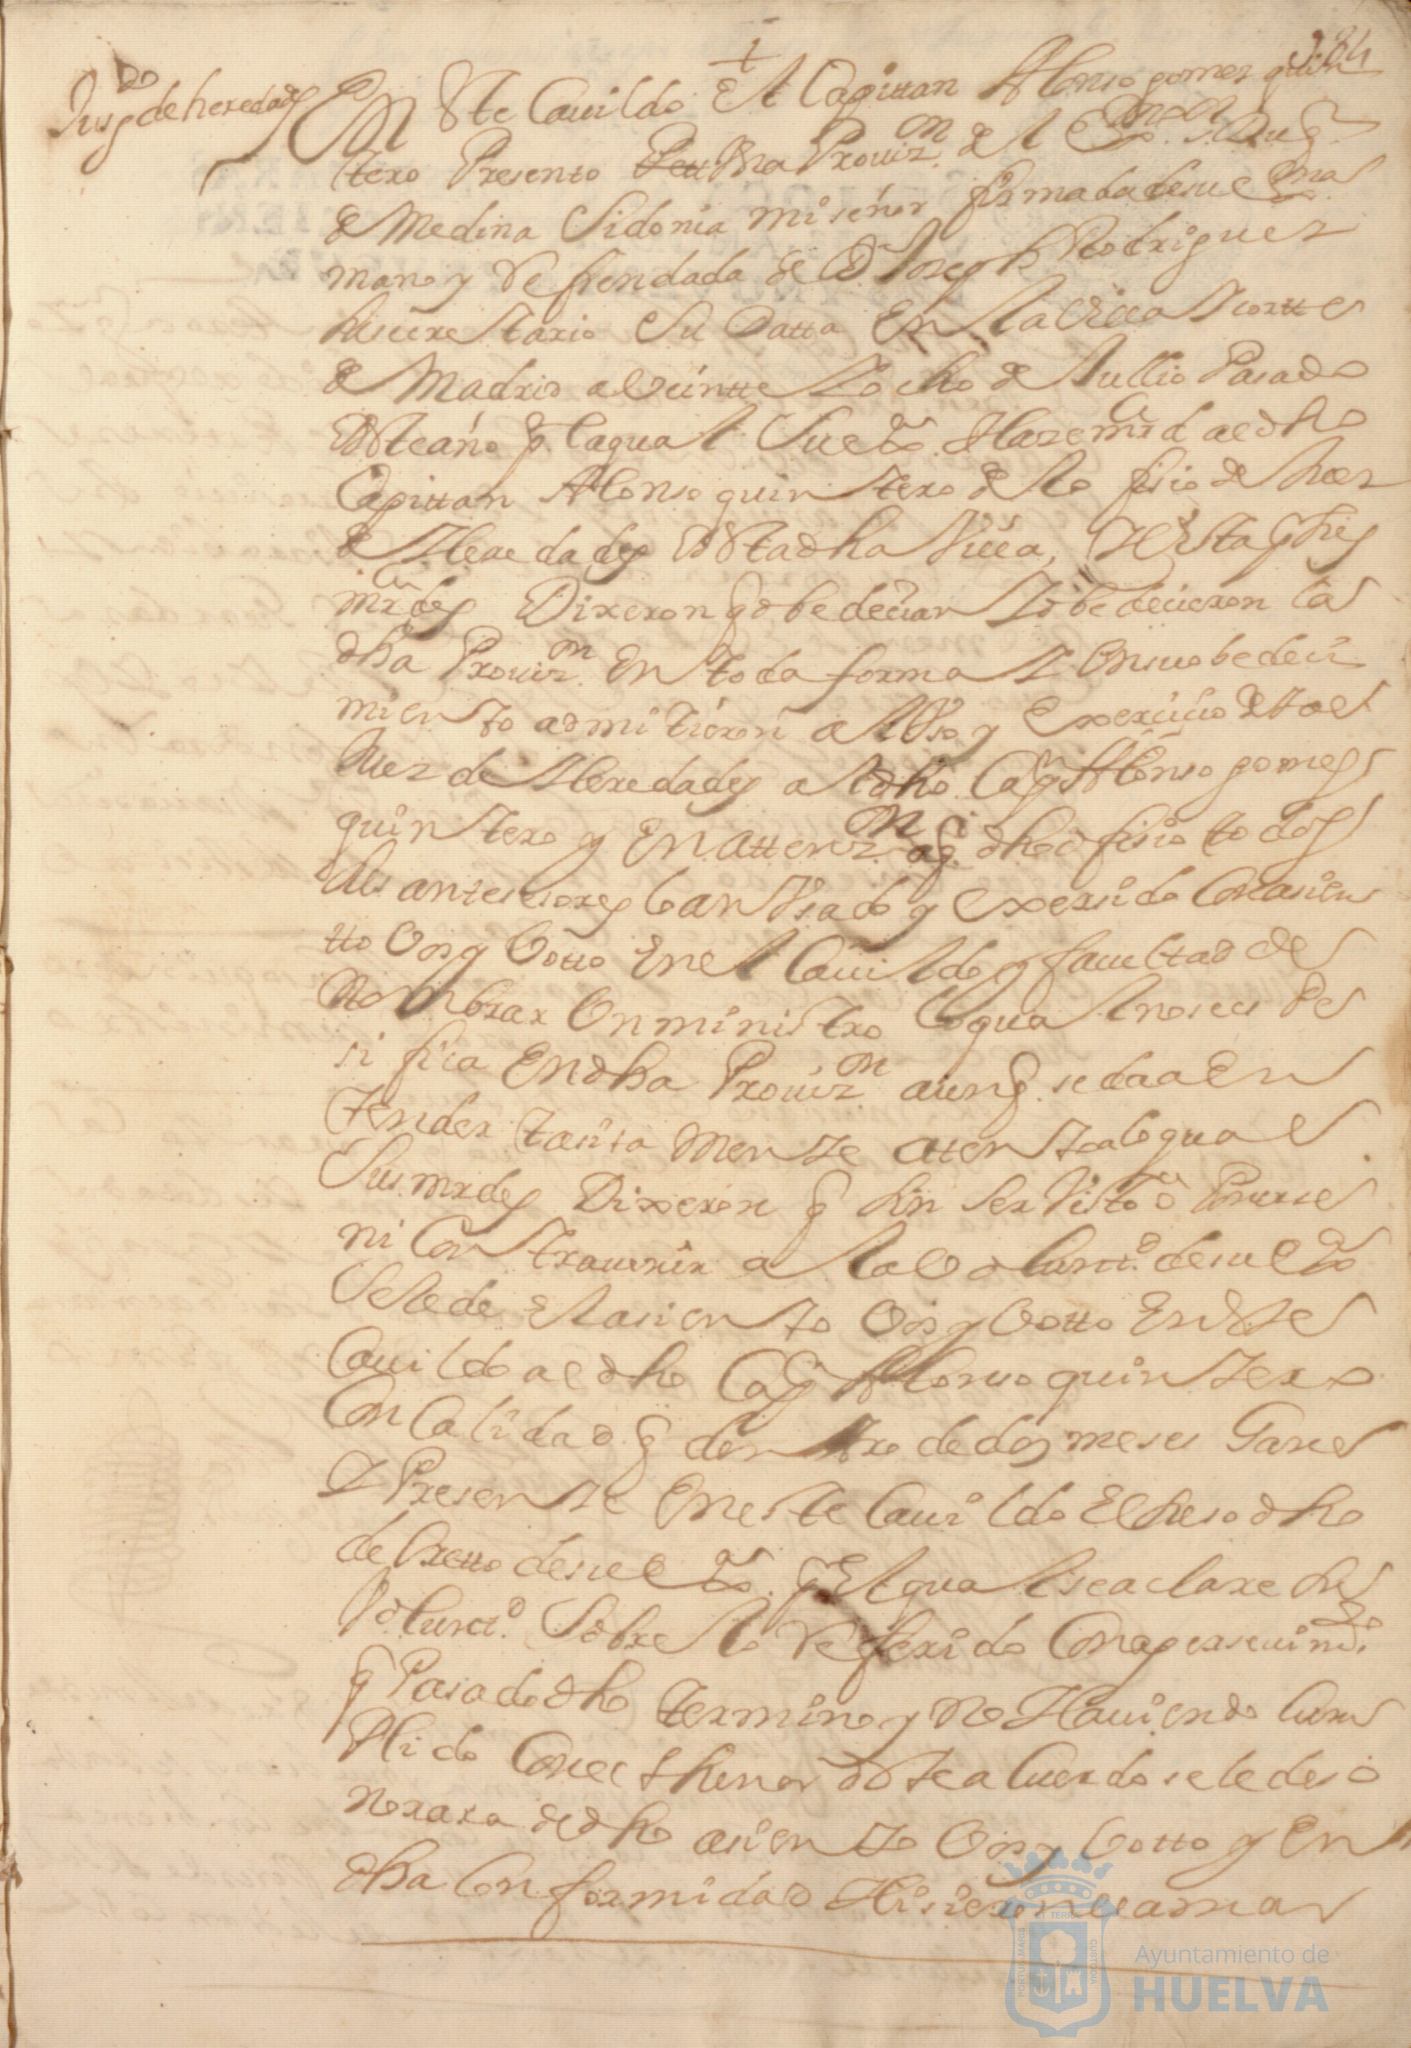 184
Juzg.do de heredades
En este Cauildo el Capittan Alonso gomez quin
tero Presento Una Prouiz.on del Ex.mo S.r Duq.
de Medina Sidonia mi señor firmada de su Ex.ma
mano y Refrendada de D. Joseph Rodriguez
su secrettario Su Datta En la Villa y Cortte
de Madrid a Veintte y ocho de Jullio Pasado
deste año p.r la qual Su Ex.a Haze m.rd al dho
Capittan Alonso quintero del ofisio de Juez
de Heredades desta dha Villa, y Vista p.r sus
mrdes Dixeron q obedecian y obedecieron la
dha Prouiz.on En toda forma y En su obedeci
miento admitieron al Uso y Exercicio de tal
Juez de Heredades al dho Cap.n Alonso gomes
quintero y En attenz.on a q. dho ofisio todos
sus antesesores lo an Usado y exersido Con asien
tto Vos y Votto En el Cauildo y facultad de
Nombrar Un ministro lo qual no se es Pe
sifica En dha Prouiz.on aunq. se da a En
tender tasita Mente atento a lo qual
Sus mrdes Dixeron q sin ser Visto o Ponerse
ni Contrauenir a la Volunt.d de su Ex.a
Se le de el asiento Vos y Votto En este
Cauildo al dho Cap.n Alonso quintero
Con Calidad q dentro de dos meses Gane
y Presente En este Cauildo El espreso dho
decretto de su Ex.a p.r el qual se aclare su
Volunt.d Sobre lo referido Con apersevim.to
q Pasado dho termino y no Hauiendo Cum
Plido Con el thenor deste acuerdo se le des o
norara de dho asiento Vos y Votto y En
dha Conformidad Hisieron llamar
Ayuntamiento de
HUELVA